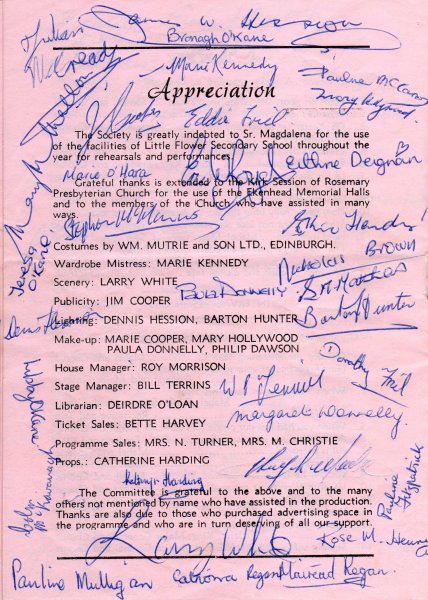 Julian
James W. Hession
Bronagh O'Kane
Mildread
Marie Kennedy
Pauline McCann
Appreciation
Eddie Friel
The Society is greatly indebted to Sr. Magdalena for the use
of the facilities of Little Flower Secondary School throughout the
year for rehearsals and performances.
Marie O'Hara
Eithne Deignan
Grateful thanks is extended to the Kirk Session of Rosemary
Presbyterian Church for the use of the Ekenhead Memorial Halls
and to the members of the Church who have assisted in many
ways.
Stephen McManus
Teresa O'Kane
Costumes by WM. MUTRIE and SON LTD., EDINBURGH.
Nicholas Brown
Wardrobe Mistress: MARIE KENNEDY
Scenery: LARRY WHITE
Publicity: JIM COOPER
Paula Donnelly
Lighting: DENNIS HESSION, BARTON HUNTER
Barton Hunter
Denis Hession
Make-up: MARIE COOPER, MARY HOLLYWOOD
PAULA DONNELLY, PHILIP DAWSON
Dorothy Friel
House Manager: ROY MORRISON
Stage Manager: BILL TERRINS
Librarian: DEIRDRE O'LOAN
Margaret Donnelly.
Ticket Sales: BETTE HARVEY
Programme Sales: MRS. N. TURNER, MRS. M. CHRISTIE
Props.: CATHERINE HARDING
Pauline Fitzpatrick
Kathryn Harding
The Committee is grateful to the above and to the many
others not mentioned by name who have assisted in the production.
Thanks are also due to those who purchased advertising space in
the programme and who are in turn deserving of all our support.
Larry White
Rose M. Henry
Pauline Mulligan
Catriona Regan
Mairead Regan.